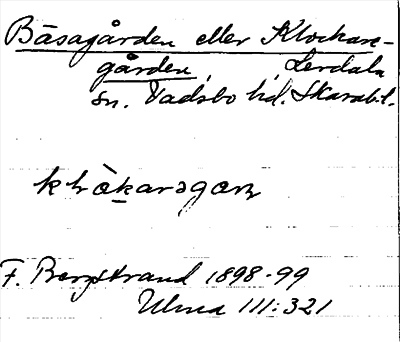 Båsagården eller Klockare-
gården, Lerdala
sn. Vadsbo hd. Skarab.l.
klòkarəgaɽn
F. Bergstrand 1898-99
Ulma 111:321